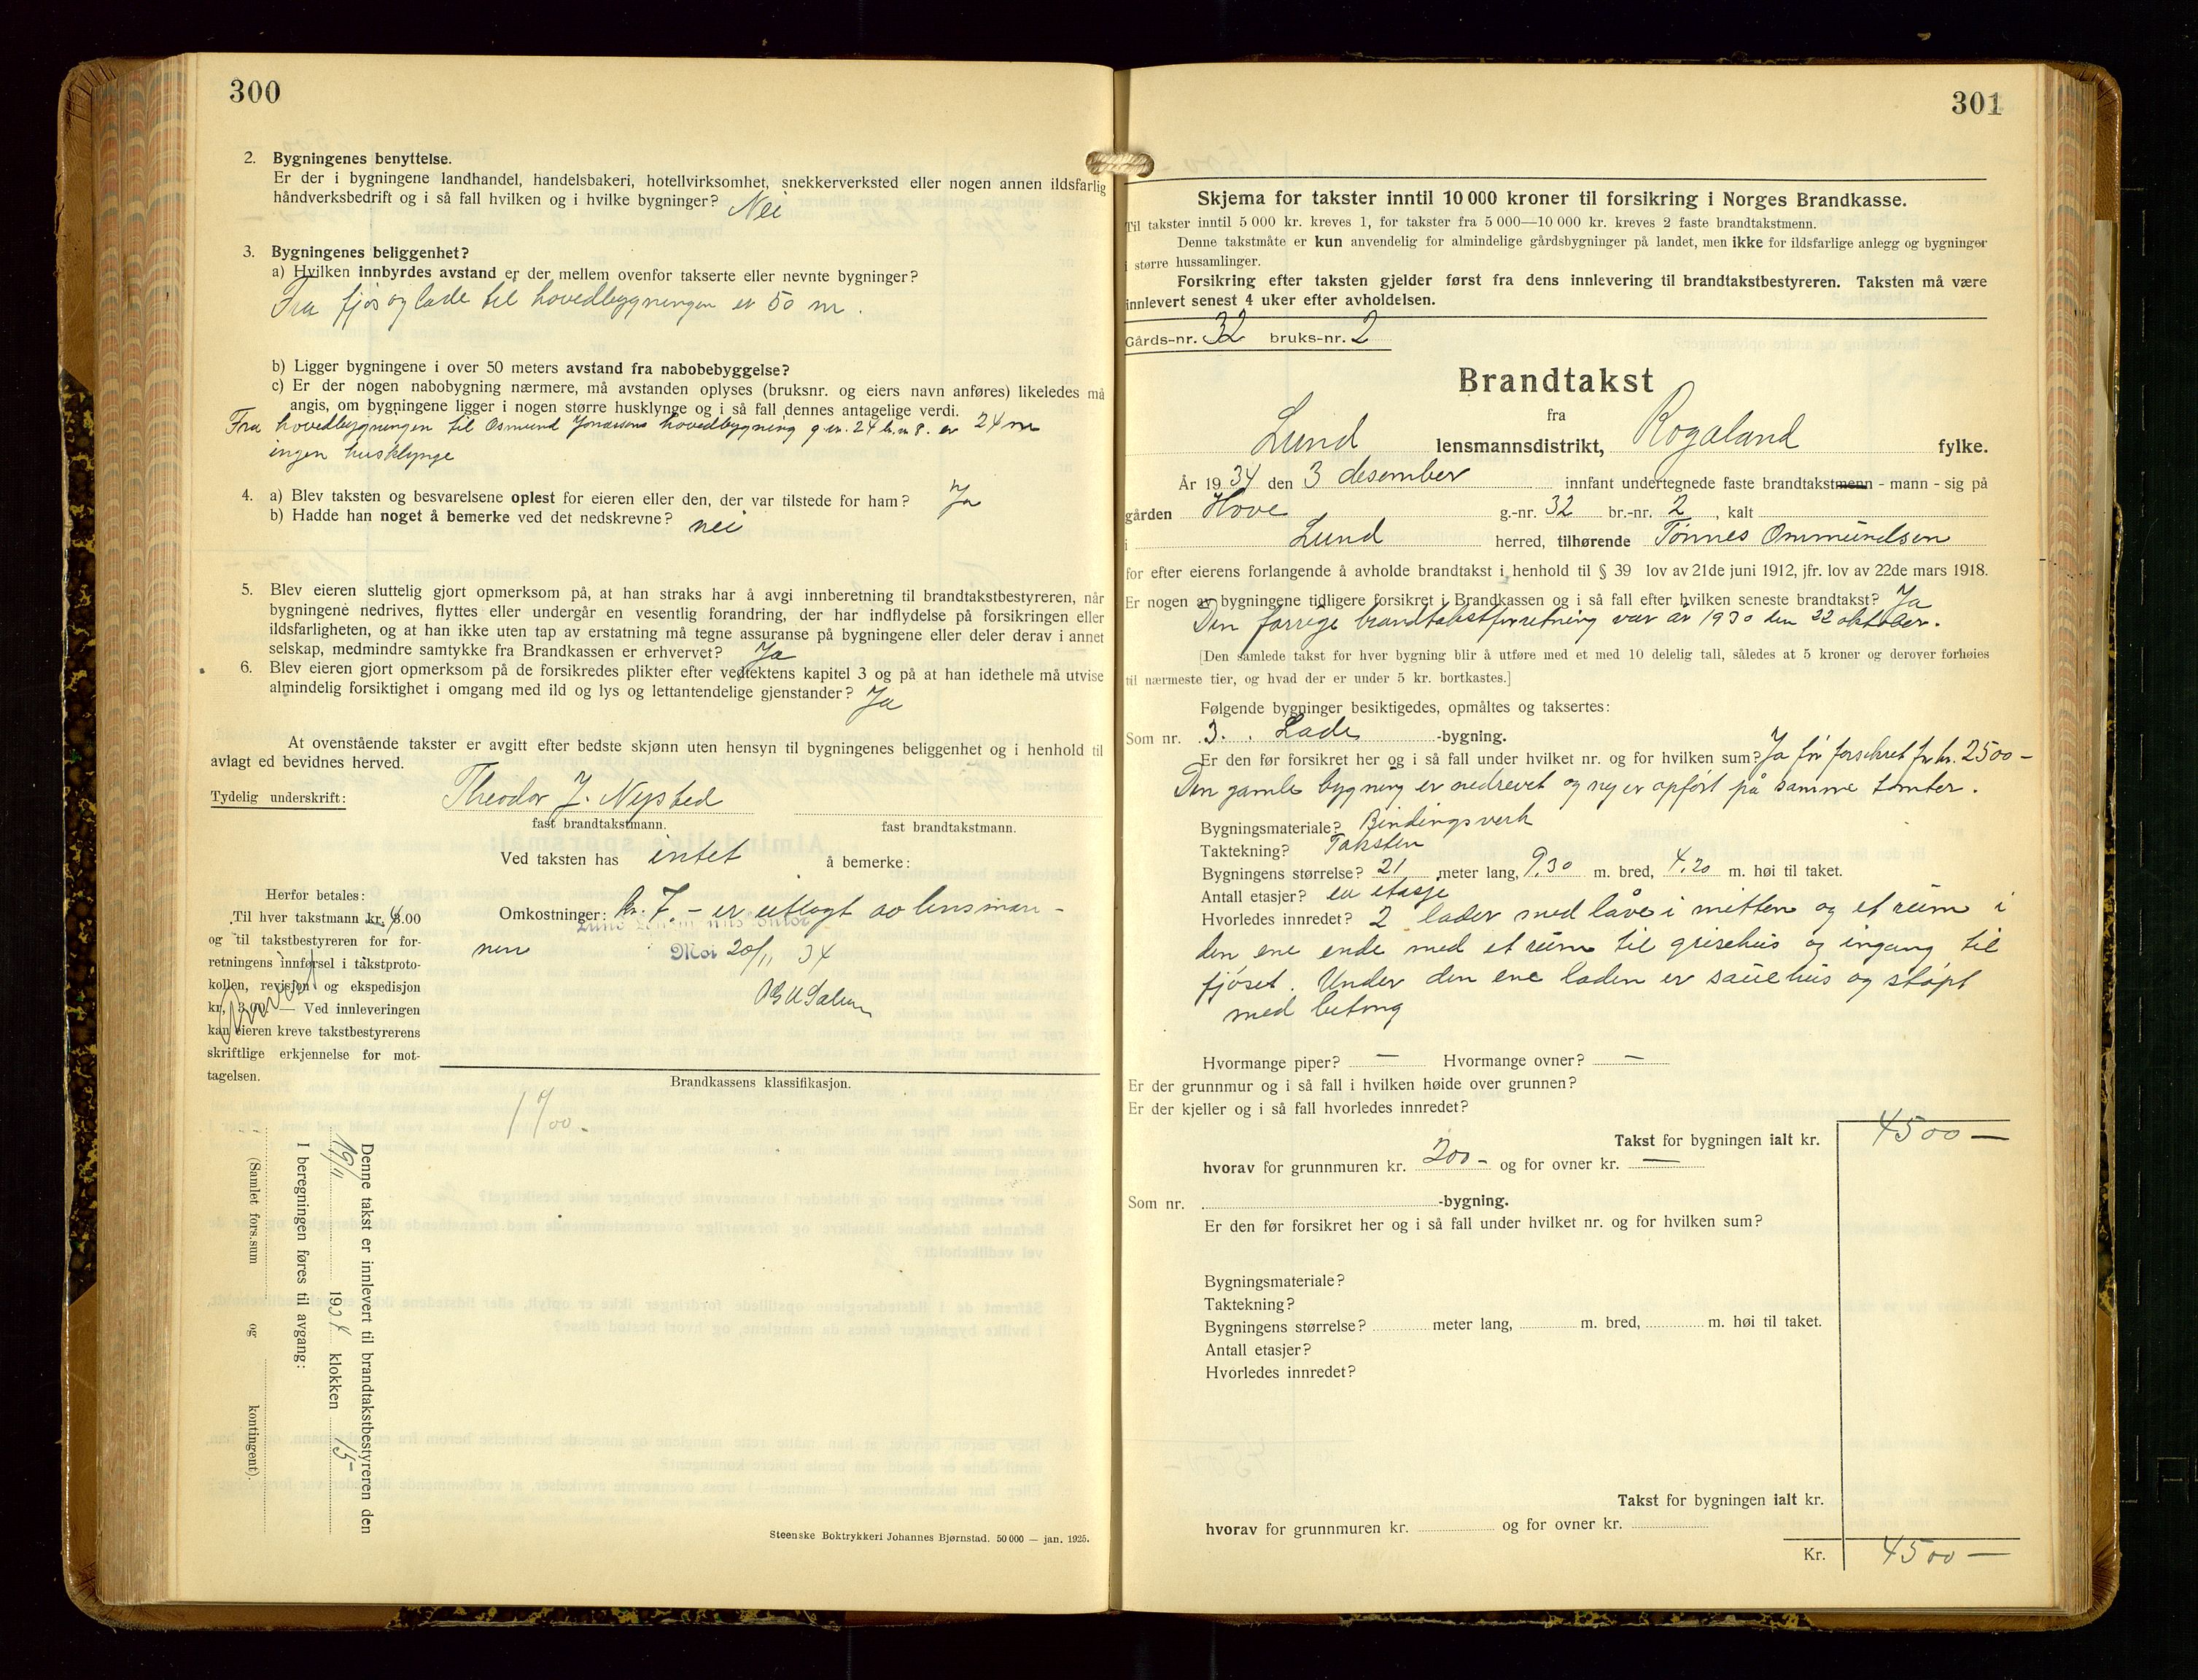 300
2. Bygningenes benyttelse.
Er der i bygningene landhandel, handelsbakeri, hotellvirksomhet, snekkerverksted eller nogen annen ildsfarlig
håndverksbedrift og i så fall hvilken og i hvilke bygninger? Nei
3. Bygningenes beliggenhet?
a) Hvilken innbyrdes avstand er der mellem ovenfor takserte eller nevnte bygninger?
Fra fjøs og lade til hovedbygningen er 50 m.
b) Ligger bygningene i over 50 meters avstand fra nabobebyggelse?
c) Er der nogen nabobygning nærmere, må avstanden oplyses (bruksnr. og eiers navn anføres) likeledes må
angis, om bygningene ligger i nogen større husklynge og i så fall dennes antagelige verdi.
Fra hovedbygningen til Osmund Jonassens hovedbygning g.nr. 24 b.nr 8. er 24 m
ingen husklynge
4. a) Blev taksten og besvarelsene oplest for eieren eller den, der var tilstede for ham? Ja
b) Hadde han noget å bemerke ved det nedskrevne? nei
5. Blev eieren sluttelig gjort opmerksom på, at han straks har å avgi innberetning til brandtakstbestyreren, når
bygningene nedrives, flyttes eller undergår en vesentlig forandring, der har indflydelse på forsikringen eller
ildsfarligheten, og at han ikke uten tap av erstatning må tegne assuranse på bygningene eller deler derav i annet
selskap, medmindre samtykke fra Brandkassen er erhvervet? Ja
6. Blev eieren gjort opmerksom på de forsikredes plikter efter vedtektens kapitel 3 og på at han idethele må utvise
almindelig forsiktighet i omgang med ild og lys og lettantendelige gjenstander? Ja
At ovenstående takster er avgitt efter bedste skjønn uten hensyn til bygningenes beliggenhet og i henhold til
avlagt ed bevidnes herved.
Tydelig underskrift: Theodor J. Nysted
fast brandtakstmann. fast brandtakstmann.
Ved taksten has intet å bemerke:
Herfor betales:
Til hver takstmann kr. 4.00
og til takstbestyreren for for-
retningens innførsel i takstproto-
kollen, revisjon og ekspedisjon
kr. 3.00. — Ved innleveringen
kan eieren kreve takstbestyrerens
skriftlige erkjennelse for mot-
tagelsen.
Omkostninger: kr. 7.- er utlagt av lensman-
nen
Lund
Moi 20/11 34
Brandkassens klassifikasjon.
Denne takst er innlevert til brandtakstbestyreren den
19/11 1934 klokken 15-
I beregningen føres til avgang:
(Samlet fors.sum og kontingent).
Steenske Boktrykkeri Johannes Bjørnstad. 50 000 — jan. 1925.
301
Skjema for takster inntil 10 000 kroner til forsikring i Norges Brandkasse.
Til takster inntil 5 000 kr. kreves 1, for takster fra 5 000—10 000 kr. kreves 2 faste brandtakstmenn.
Denne takstmåte er kun anvendelig for almindelige gårdsbygninger på landet, men ikke for ildsfarlige anlegg og bygninger
i større hussamlinger.
Forsikring efter taksten gjelder først fra dens innlevering til brandtakstbestyreren. Taksten må være
innlevert senest 4 uker efter avholdelsen.
Gårds-nr. 32 bruks-nr. 2
Brandtakst
fra
Lund lensmannsdistrikt, Rogaland fylke.
År 1934 den 3 desember innfant undertegnede faste brandtakstmenn - mann - sig på
gården Hove g.-nr. 32 br.-nr. 2, kalt
i Lund herred, tilhørende Tønnes Ommundsen
for efter eierens forlangende å avholde brandtakst i henhold til § 39 lov av 21de juni 1912, jfr. lov av 22de mars 1918.
Er nogen av bygningene tidligere forsikret i Brandkassen og i så fall efter hvilken seneste brandtakst? Ja
Den forrige brandtakstforretning var år 1930 den 22 oktober.
[Den samlede takst for hver bygning blir å utføre med et med 10 delelig tall, således at 5 kroner og derover forhøies
til nærmeste tier, og hvad der er under 5 kr. bortkastes.]
Følgende bygninger besiktigedes, opmåltes og taksertes:
Som nr. 3. Lade -bygning.
Er den før forsikret her og i så fall under hvilket nr. og for hvilken sum? Ja før forsikret for kr. 2500-
Den gamle bygning er nedrevet og ny er opført på samme tomter.
Bygningsmateriale? Bindingsverk
Taktekning? Taksten
Bygningens størrelse? 21 meter lang, 9.30 m. bred, 4.20 m. høi til taket.
Antall etasjer? en etasje
Hvorledes innredet? 2 lader med låve i mitten og et rum i
den ene ende med et rum til grisehus og ingang til
fjøset. Under den ene laden er sauehus og støpt
med betong
Hvormange piper? — Hvormange ovner? —
Er der grunnmur og i så fall i hvilken høide over grunnen?
Er der kjeller og i så fall hvorledes innredet?
Takst for bygningen ialt kr. 4500—
hvorav for grunnmuren kr. 200- og for ovner kr. —
Som nr. -bygning.
Er den før forsikret her og i så fall under hvilket nr. og for hvilken sum?
Bygningsmateriale?
Taktekning?
Bygningens størrelse? meter lang, m. bred, m. høi til taket.
Antall etasjer?
Hvorledes innredet?
Takst for bygningen ialt kr.
hvorav for grunnmuren kr. og for ovner kr.
Kr. 4500—